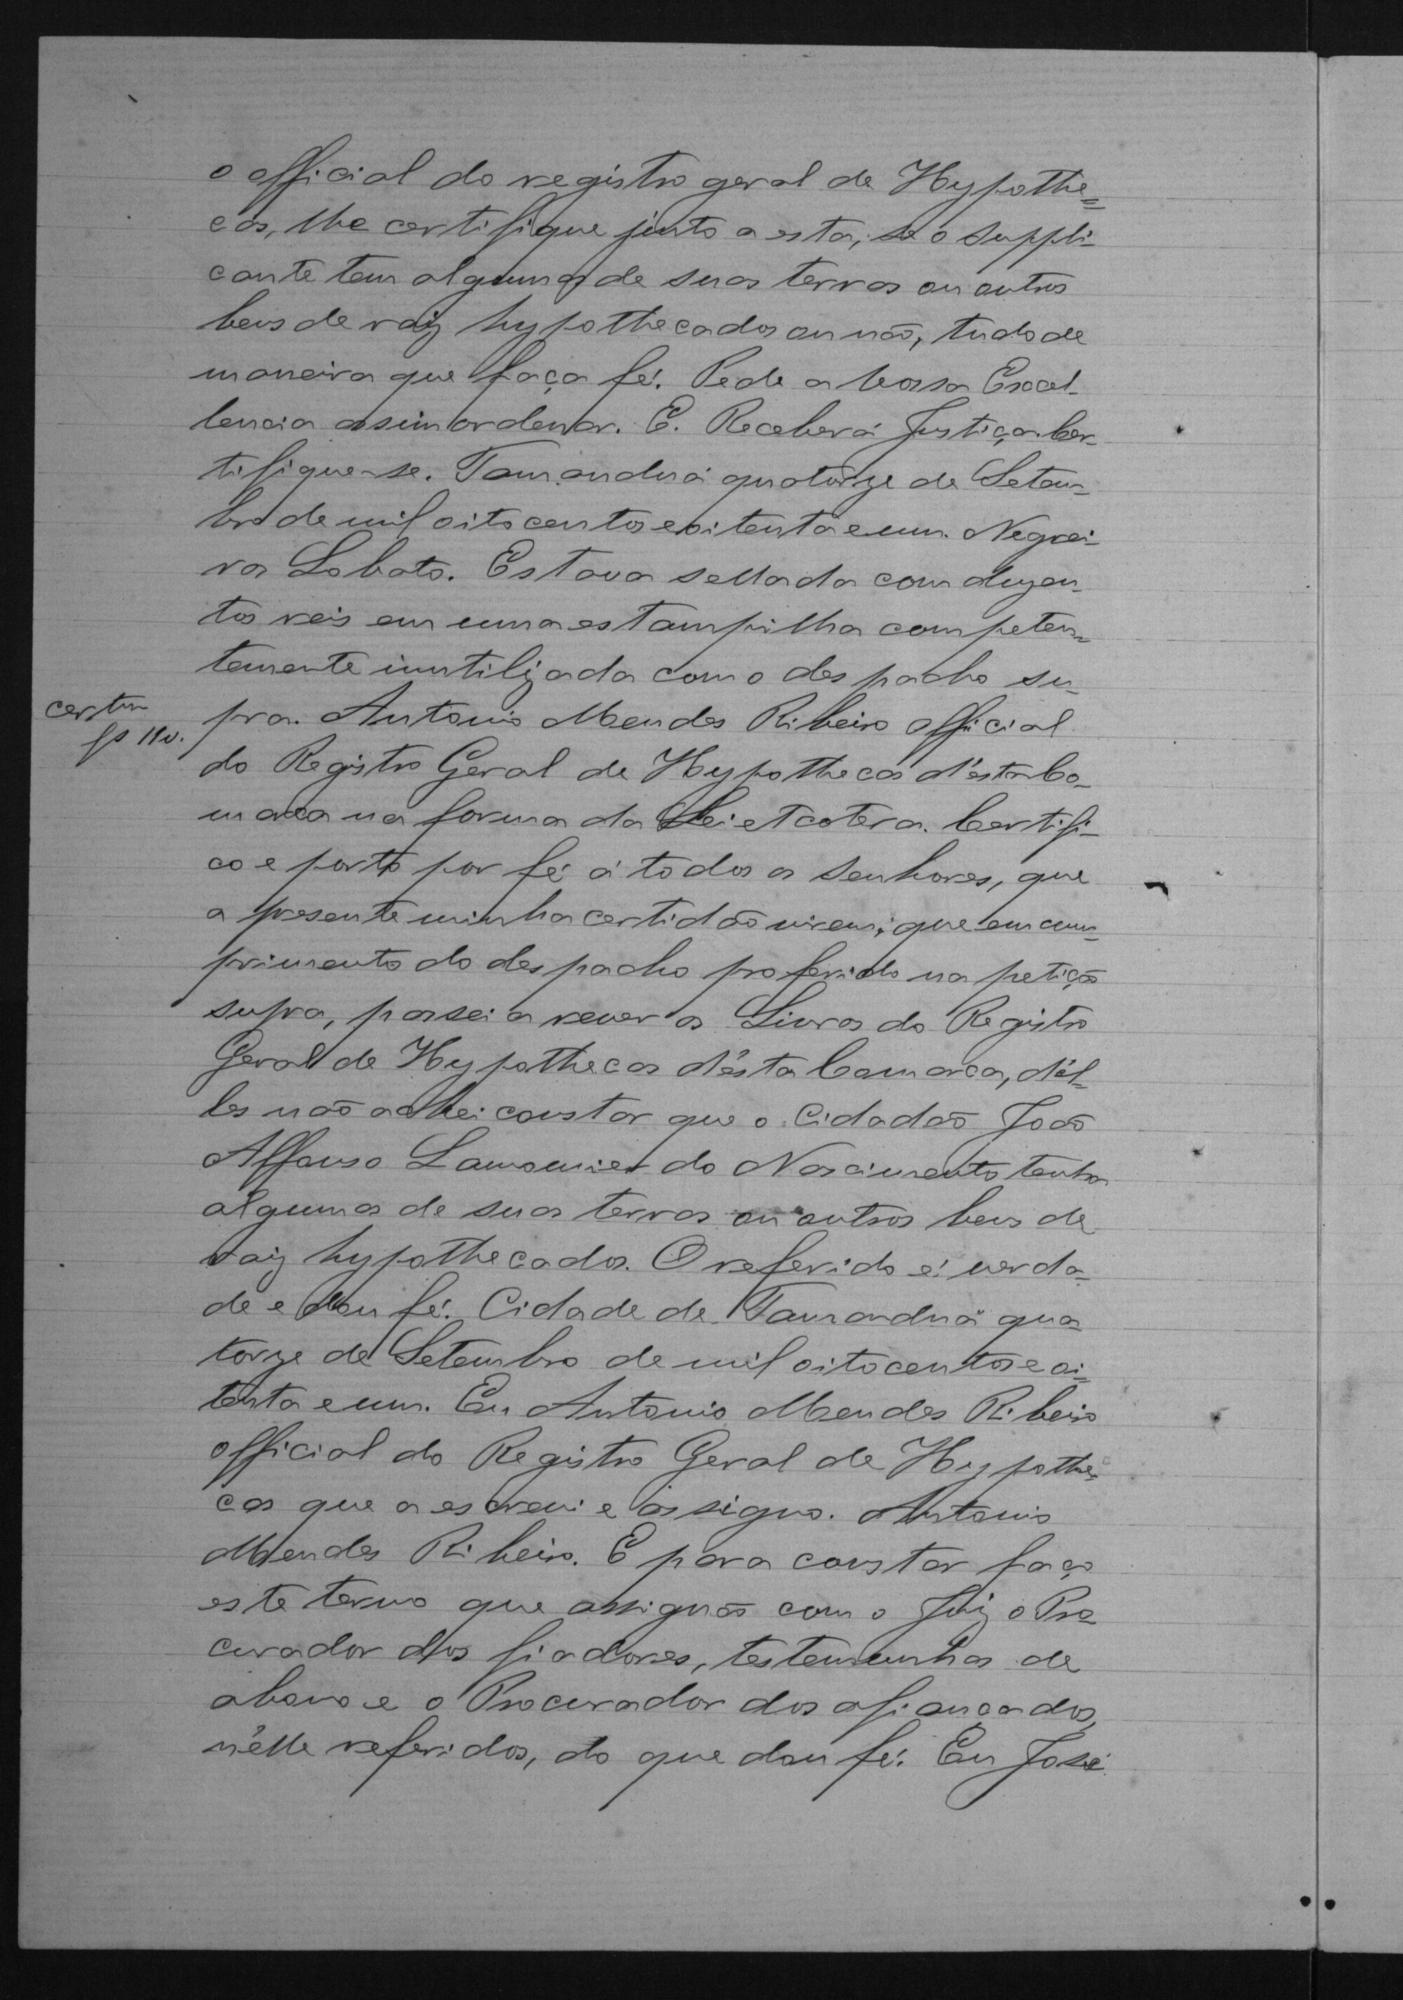 o official do registro geral de Hypothe=
cas, lhe certifique junto a esta, se o Suppli-
cante tem algumas de suas terras ou outros
bens de raiz hypothecados ou não, tudo de
maneira que faça fé. Pede a Vossa Excel-
lencia assim ordenar. E. Receberá Justiça. Cer-
tifique-se. Tamanduá quatorze de Setem-
bro de mil oitocentos e oitenta e um. Negrei-
ros Lobato. Estava sellada com duzen-
tos reis em uma estampilha competen-
temente inutilizada com o despacho su-
pra. Antonio Mendes Ribeiro official
certam
fs 11v.
do Registro Geral de Hypothecas d'esta Co-
marca na forma da Lei etcetera. Certifi-
co e porto por fé á todos os senhores, que
a presente minha certidão virem; que em cum-
primento do despacho proferido na petição
supra, passei a rever os Livros do Registro
Geral de Hypothecas d'ésta Comarca, d'él-
les não achei constar que o Cidadão João
Affonso Lamounier do Nascimento tenha
algumas de suas terras ou outros bens de
raiz hypothecados. O referido é verda-
de e dou fé. Cidade de Tamanduá qua-
torze de Setembro de mil oitocentos e oi-
tenta e um. Eu Antonio Mendes Ribeiro
official do Registro Geral de Hypothe-
cas que a escrevi e assigno. Antonio
Mendes Ribeiro. E para constar faço
este termo que assignão com o Juiz o Pro-
curador dos fiadores, testemunhas de
abono e o Procurador dos afiançados,
n'élle referidos, do que dou fé. Eu José